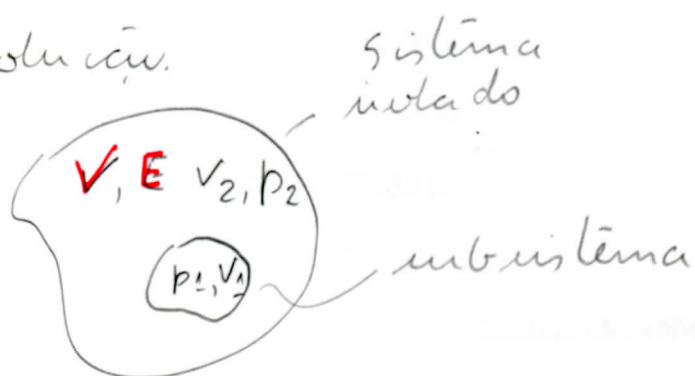 olução.
sistema
isolado
V, E V2, p2
p1, V1
subsistema